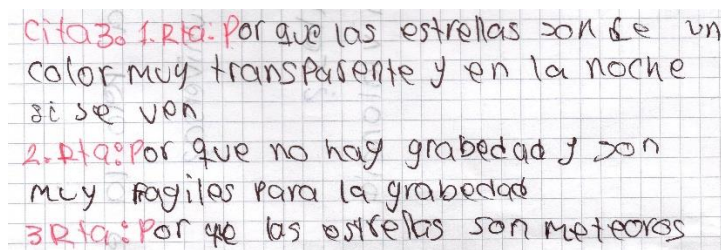 Cita3. 1.Rta: Por que las estrellas son de un
color muy transparente y en la noche
si se ven
2. Rta: Por que no hay grabedad y son
muy fagiles para la grabedad
3 Rta: Por que las estrellas son meteoros